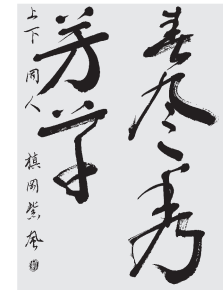 春尽秀
芳草
上下 同人 槙岡紫風